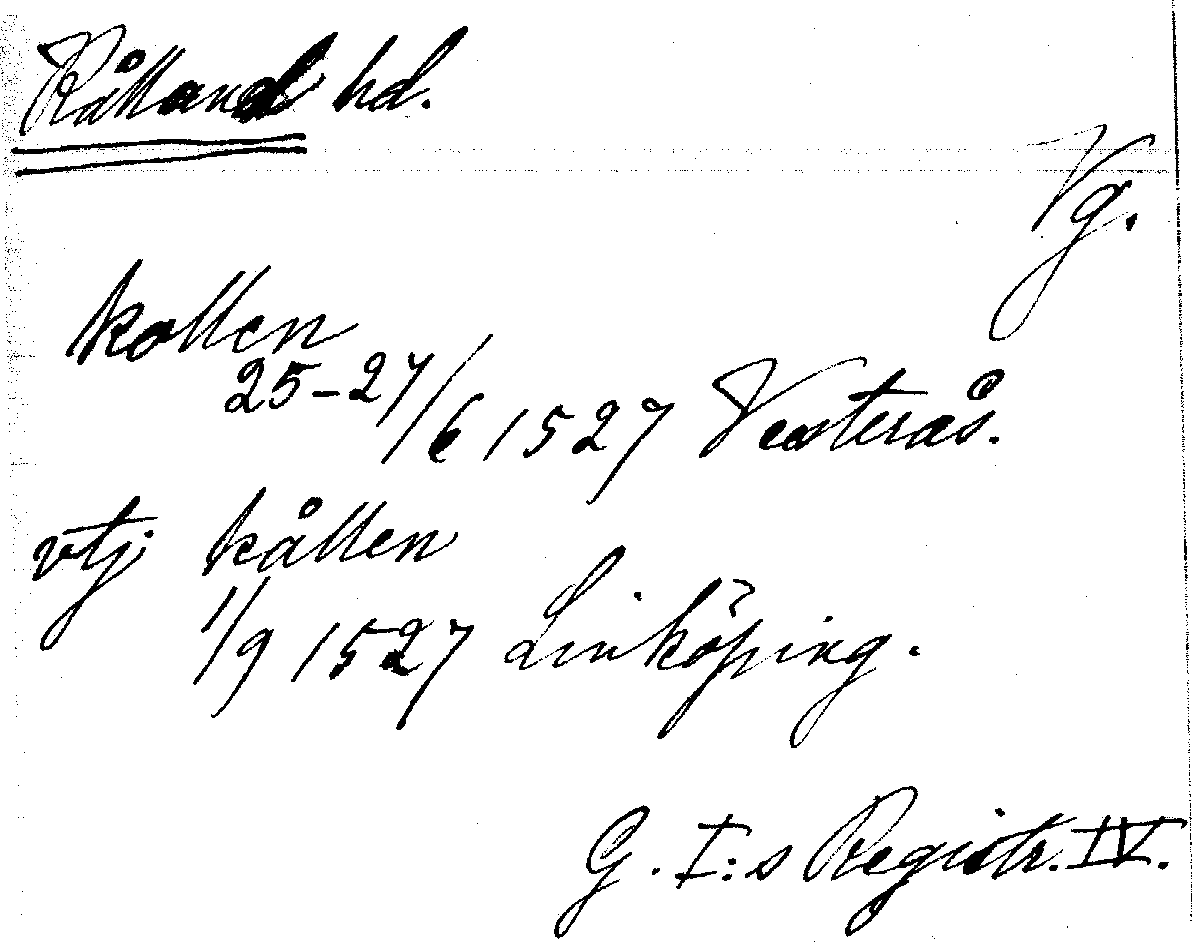 Kålland hd.
Vg.
kollen
25-27/6 1527 Vesterås.
vtj kållen
1/9 1527 Linköping.
G. I:s Registr. IV.